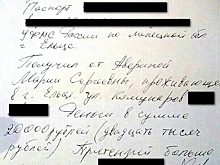 Паспорт
УФМС России по липецкой обл
г Ельца.
Получил от Авериной
Марии Сергеевны, проживающей
в г. Ельце ул. Комунаров
Деньги в сумме
20000 рублей (двадцать тысяч
рублей) Претензий больше